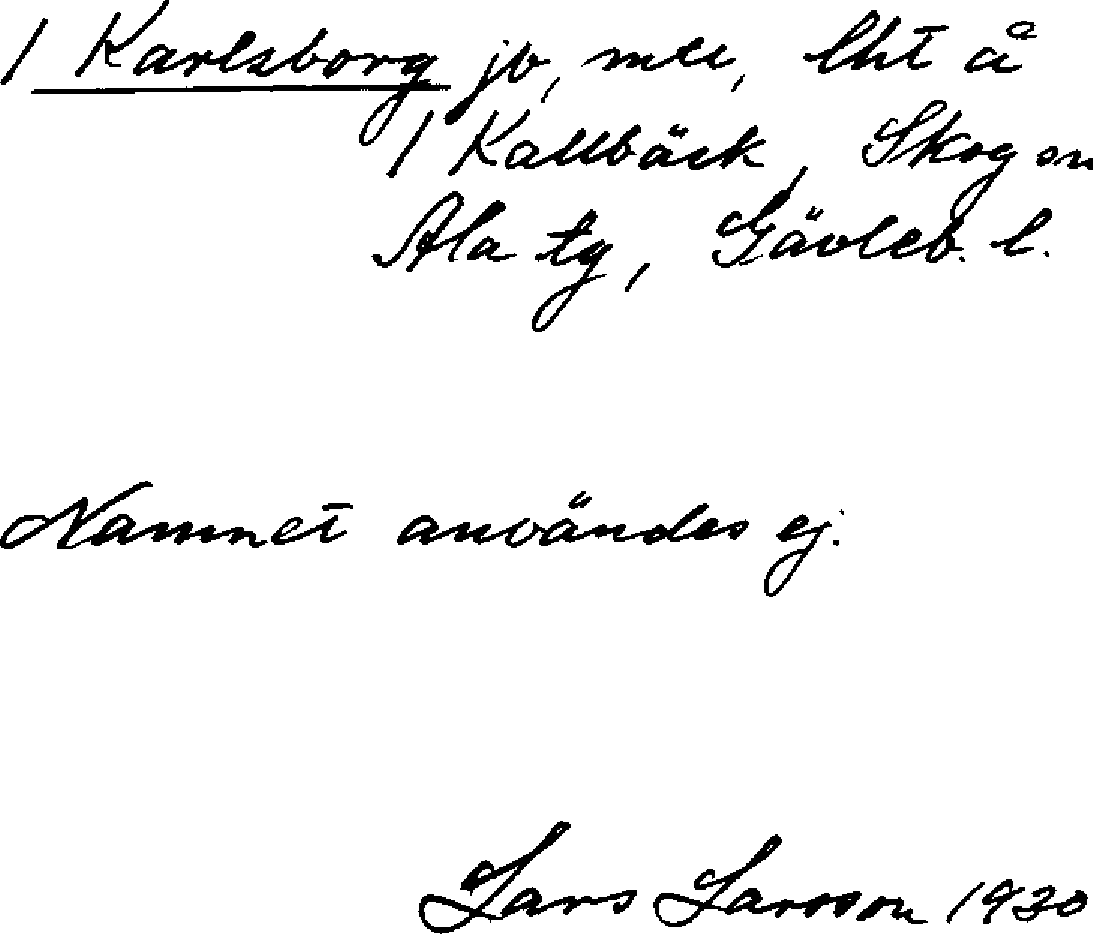 / Karlsborg jb, mtl, lht å
/ Kallbäck, Skog sn
Ala tg, Gävleb. l.
Namnet användes ej.
Lars Larsson 1930